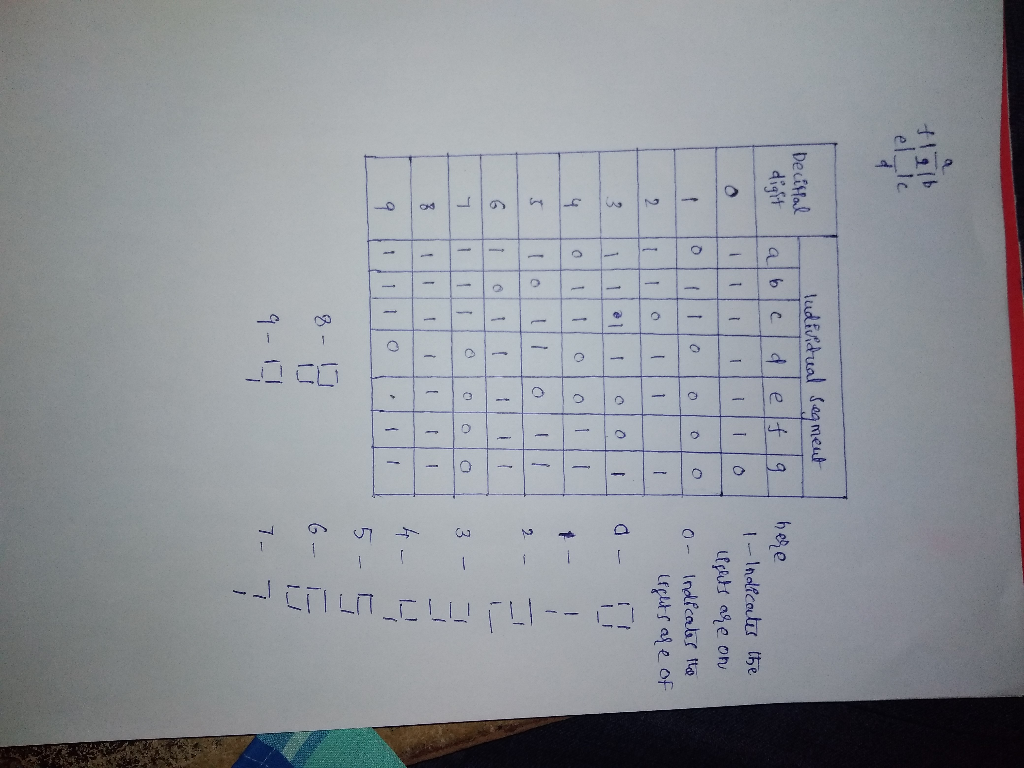 a
f | g | b
e | | c
d
Decimal digit Individual Segment
a b c d e f g
0 1 1 1 1 1 1 0
1 0 1 1 0 0 0 0
2 1 1 0 1 1 1
3 1 1 1 1 0 0 1
4 0 1 1 0 0 1 1
5 1 0 1 1 0 1 1
6 1 0 1 1 1 1 1
7 1 1 1 0 0 0 0
8 1 1 1 1 1 1 1
9 1 1 1 0 . 1 1
here
1 - Indicates the
lights are on
0 - Indicates the
lights are of
0 -
1 -
2 -
3 -
4 -
5 -
6 -
7 -
8 -
9 -